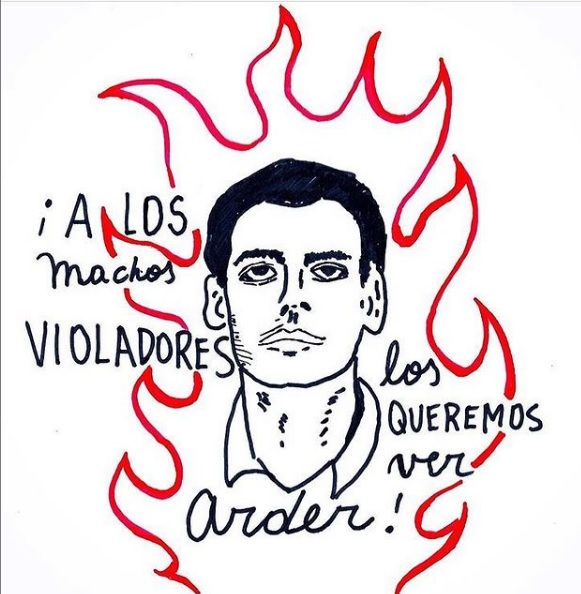 ¡A LOS
machos
VIOLADORES
los
QUEREMOS
ver
arder!